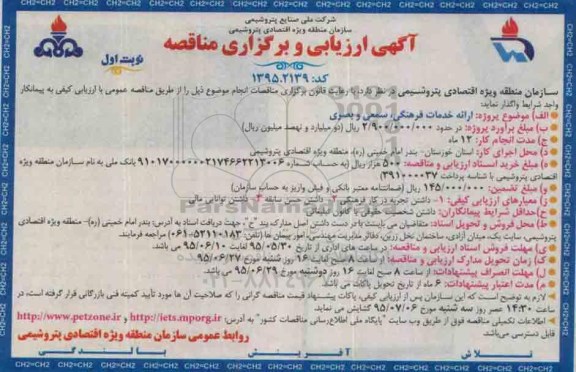 شرکت ملی صنایع پتروشیمی
سازمان منطقه ویژه اقتصادی پتروشیمی
آگهی ارزیابی و برگزاری مناقصه
نوبت اول
کد: ۱۳۹۵.۲۱۳۹
سازمان منطقه ویژه اقتصادی پتروشیمی در نظر دارد، با رعایت قانون برگزاری مناقصات انجام موضوع ذیل را از طریق مناقصه عمومی با ارزیابی کیفی به پیمانکار
واجد شرایط واگذار نماید:
الف) موضوع پروژه: ارائه خدمات فرهنگی، سمعی و بصری
ب) مبلغ برآورد پروژه: در حدود ۲/۹۰۰/۰۰۰/۰۰۰ ریال (دو میلیارد و نهصد میلیون ریال)
ج) مدت انجام کار: ۱۲ ماه
د) محل اجرای کار: استان خوزستان- بندر امام خمینی (ره)، منطقه ویژه اقتصادی پتروشیمی
ه) مبلغ خرید اسناد ارزیابی و مناقصه: ۵۰۰ هزار ریال (به حساب شماره ۲۱۷۴۶۶۲۲۱۳۰۰۶ بانک ملی به نام سازمان منطقه ویژه
اقتصادی پتروشیمی با شناسه پرداخت
و) مبلغ تضمین: ۱۴۵/۰۰۰/۰۰۰ ریال (ضمانتنامه معتبر بانکی و فیش واریز به حساب سازمان)
ز) معیارهای ارزیابی کیفی: ۱- داشتن تجربه در کار فرهنگی ۲- داشتن حسن سابقه ۳- داشتن توانایی مالی
ح) حداقل شرایط پیمانکاران: داشتن شخصیت حقوقی
ط) محل فروش و تحویل اسناد: متقاضیان می بایست با در دست داشتن اصل مدارک بند "ح" جهت دریافت اسناد به آدرس: بندر امام خمینی (ره)- منطقه ویژه اقتصادی
پتروشیمی، سایت یک، میدان آزادی، ساختمان نخل زرین، دفاتر مدیریت مهندسی، امور پیمان ها (تلفن: ۵۲۱۱۰۱۸۳-۰۶۱) مراجعه فرمایند.
ی) مهلت فروش اسناد ارزیابی و مناقصه: در ساعت های اداری از تاریخ ۹۵/۰۵/۳۰ لغایت ۹۵/۰۶/۱۰ می باشد.
ک) زمان تحویل مدارک ارزیابی و مناقصه: از ساعت ۸ صبح لغایت ۱۶ روز شنبه مورخ ۹۵/۰۶/۲۷
ل) مهلت انصراف پیشنهادات: از ساعت ۸ صبح لغایت ۱۶ روز دوشنبه مورخ ۹۵/۰۶/۲۹ می باشد.
م) مدت اعتبار پیشنهادات: ۶ ماه از تاریخ تحویل پاکات می باشد.
لازم به توضیح است که این سازمان پس از ارزیابی کیفی، پاکات پیشنهاد قیمت مناقصه گرانی را که صلاحیت آن ها مورد تأیید کمیته فنی بازرگانی قرار گرفته است، در
ساعت ۱۴:۳۰ عصر روز سه شنبه مورخ ۹۵/۰۷/۰۶ گشایش می نماید.
اطلاعات تکمیلی مناقصه فوق از طریق وب سایت "پایگاه ملی اطلاع رسانی مناقصات کشور" به آدرس: http://iets.mporg.ir و http://www.petzone.ir
قابل دسترسی می باشد.
روابط عمومی سازمان منطقه ویژه اقتصادی پتروشیمی
تلاش آفرینش بالندگی